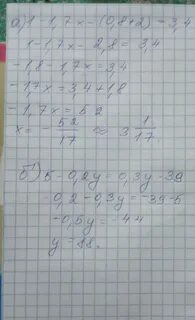 а) 1-1,7x-(0,8+2)=3,4
1-1,7x-2,8=3,4
-1,8-1,7x=3,4
-1,7x=3,4+1,8
-1,7x=5,2
x=-52/17≈3 1/17
б) 5-0,2y=0,3y-39
-0,2-0,3y=-39-5
-0,5y=-44
y=88.